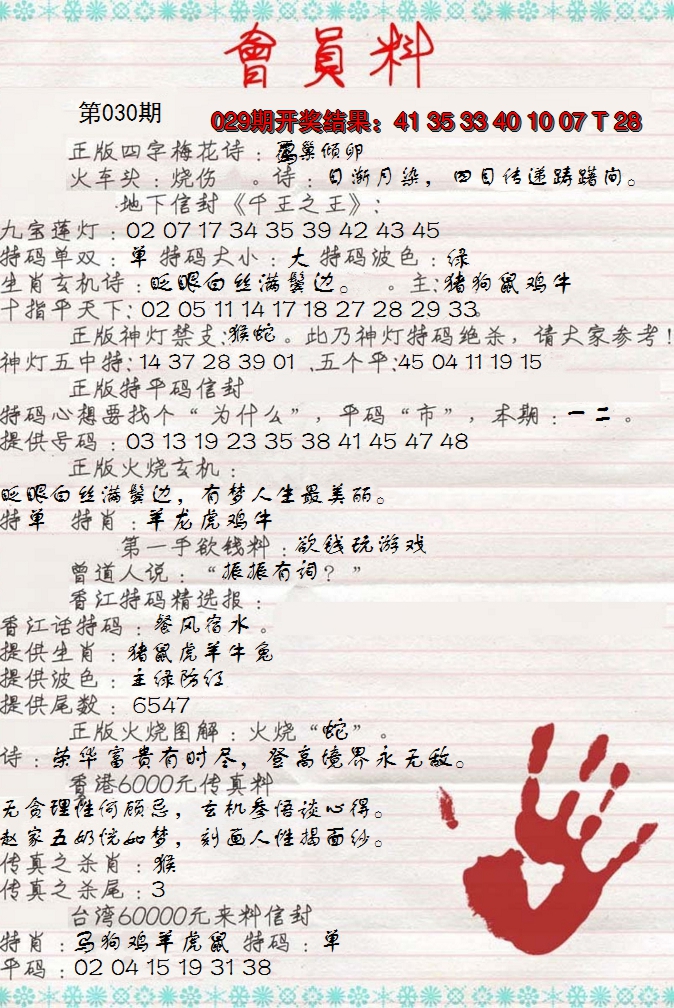 會員料
第030期
029期开奖结果：41 35 33 40 10 07 T 28
正版四字梅花诗：覆巢倾卵
火车头：烧伤 。诗：日渐月染，四目传递踌躇间。
地下信封《千王之王》：
九宝莲灯：02 07 17 34 35 39 42 43 45
特码单双：单 特码大小：大 特码波色：绿
生肖玄机诗：眨眼白丝满鬓边。 。主:猪狗鼠鸡牛
十指平天下: 02 05 11 14 17 18 27 28 29 33。
正版神灯禁支:猴蛇。此乃神灯特码绝杀，请大家参考！
神灯五中特:14 37 28 39 01 .五个平:45 04 11 19 15
正版特平码信封
特码心想要找个“为什么”，平码“市”，本期：一二。
提供号码：03 13 19 23 35 38 41 45 47 48
正版火烧玄机：
眨眼白丝满鬓边，有梦人生最美丽。
特单 特肖：羊龙虎鸡牛
第一手欲钱料：欲钱玩游戏
曾道人说：“振振有词？”
香江特码精选报：
香江话特码：餐风宿水。
提供生肖：猪鼠虎羊牛兔
提供波色：主绿防红
提供尾数：6547
正版火烧图解：火烧“蛇”。
诗：荣华富贵有时尽，登高境界永无敌。
香港6000元传真料
无贪理性何顾忌，玄机参悟谈心得。
赵家五奶恍如梦，刻画人性揭面纱。
传真之杀肖：猴
传真之杀尾：3
台湾60000元来料信封
特肖：马狗鸡羊虎鼠 特码：单
平码：02 04 15 19 31 38